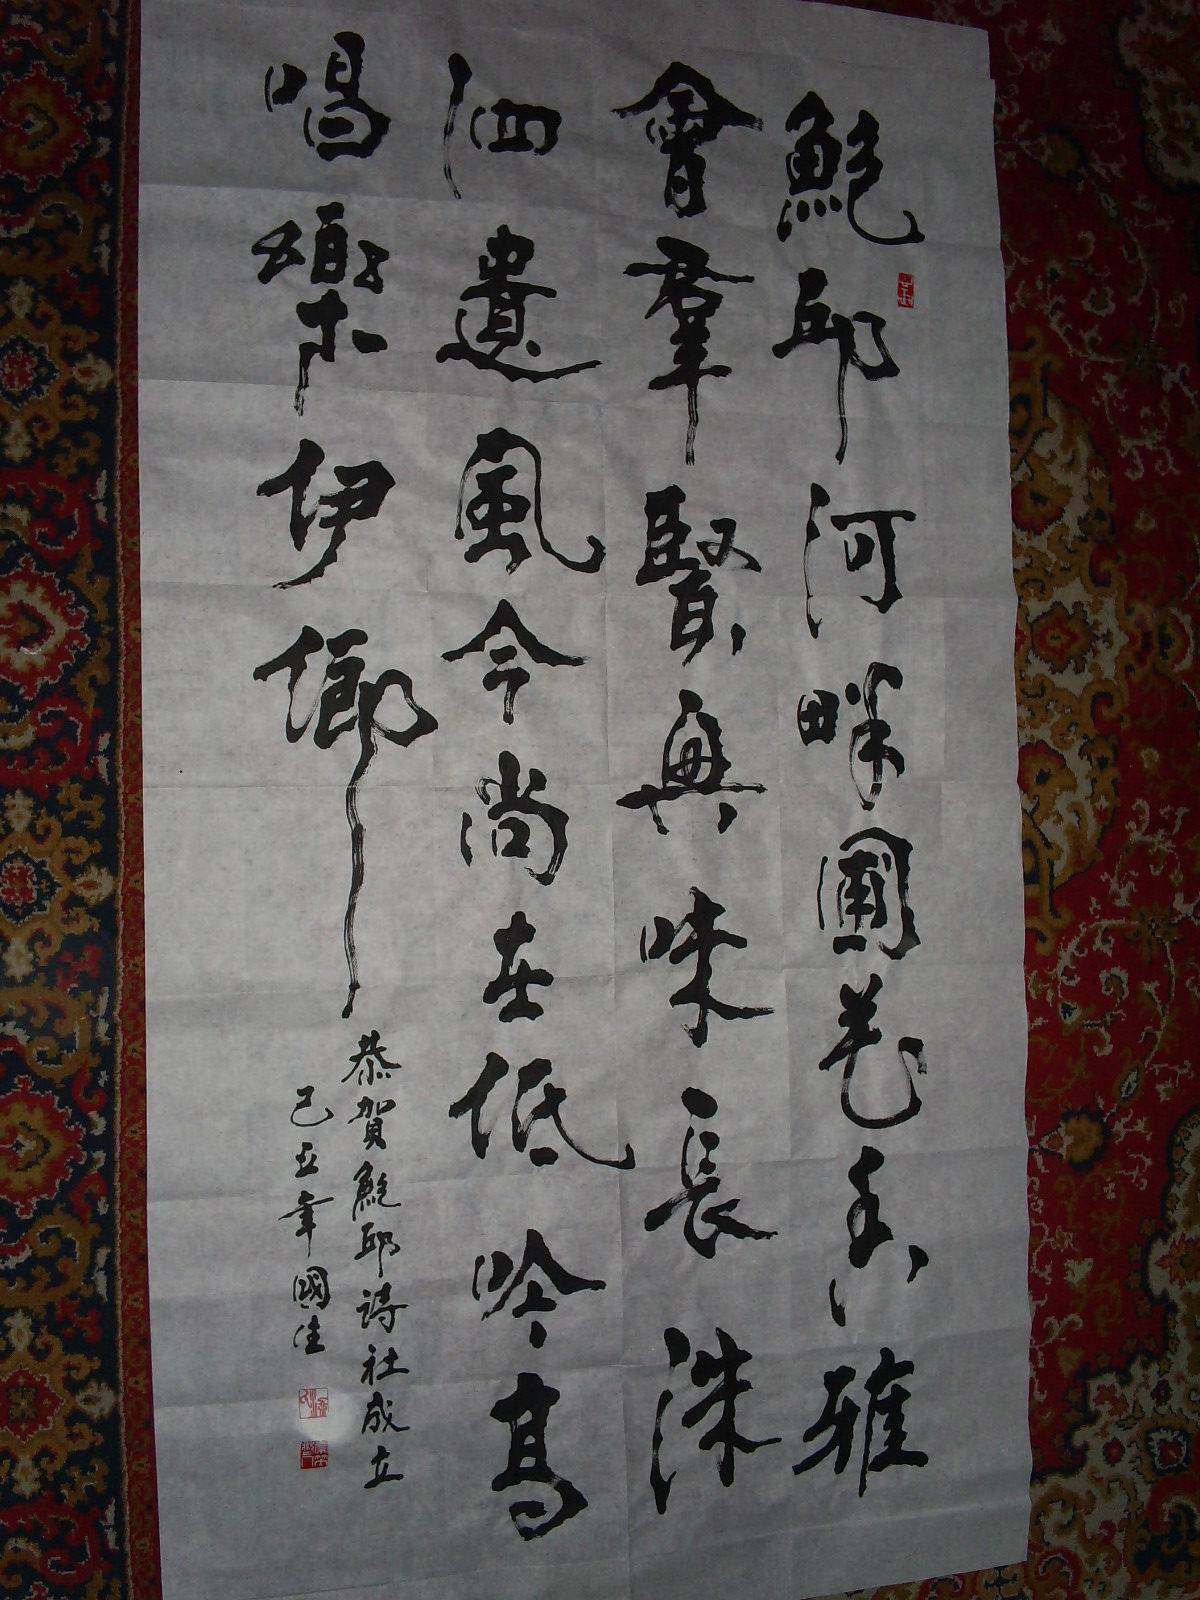 鮑邱河畔圃花香雅
會羣賢興味長洙
泗遺風今尚在低吟高
唱樂伊鄉
恭賀鮑邱詩社成立
己丑年國佳